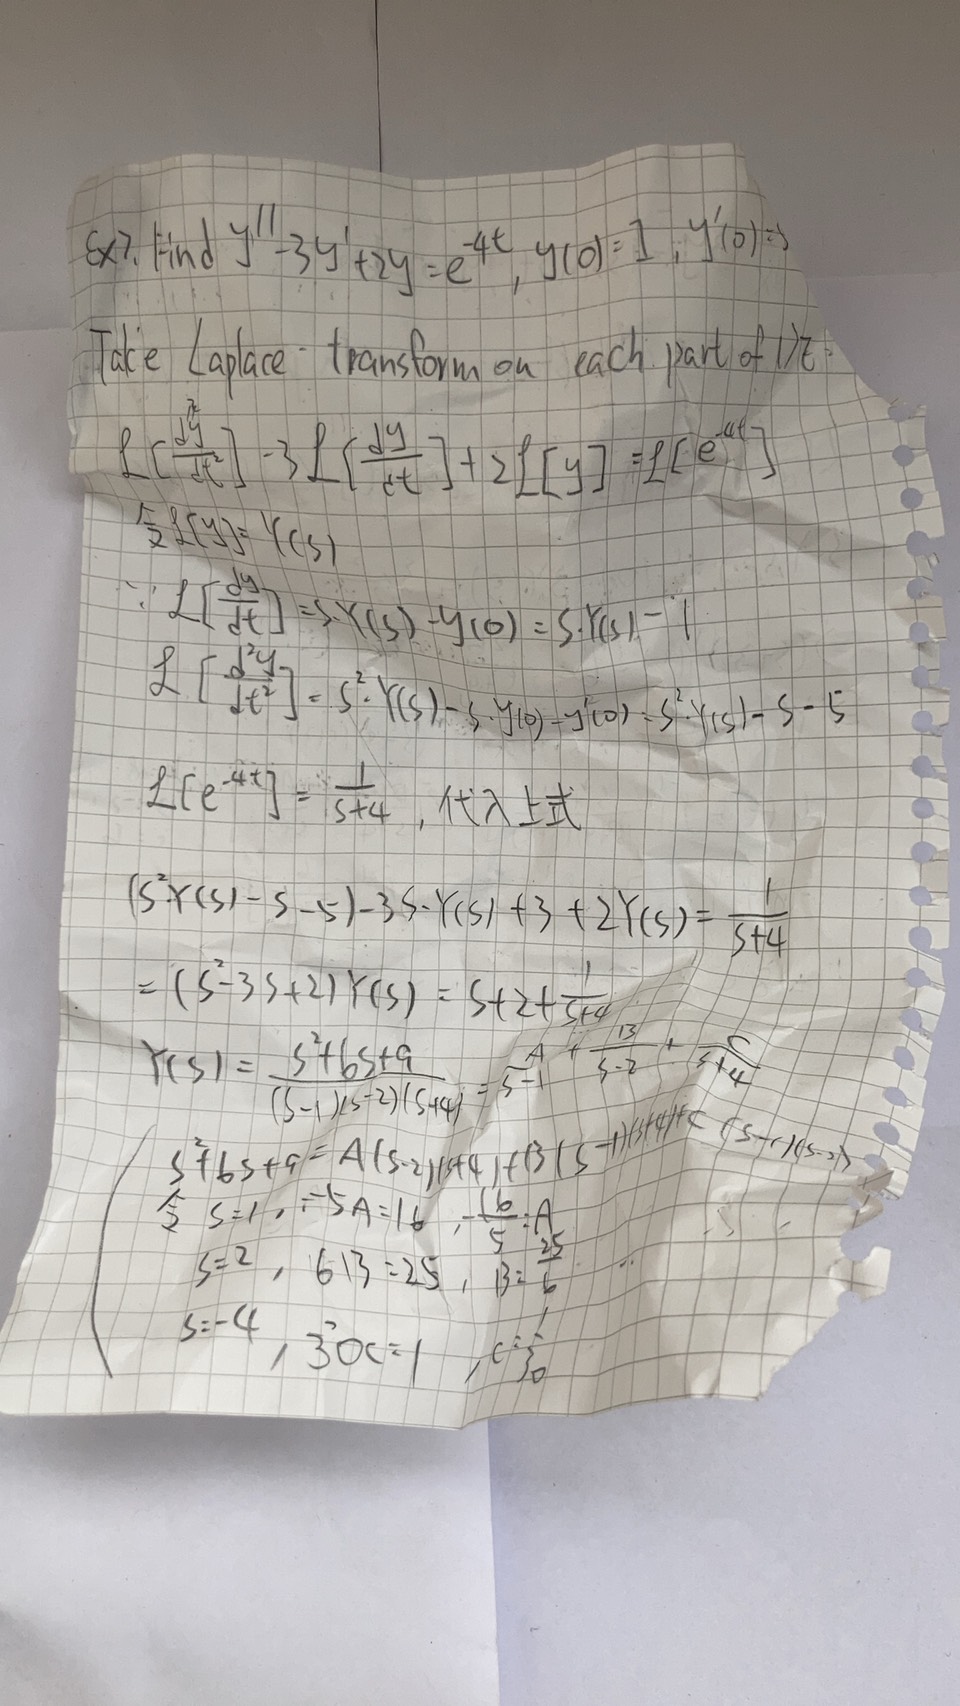 Ex7. Find y'' - 3y' + 2y = e^{-4t}, y(0) = 1, y'(0) =
Take Laplace transform on each part of DE:
ℒ[d²y/dt²] - 3ℒ[dy/dt] + 2ℒ[y] = ℒ[e^{-4t}]
令ℒ[y] = Y(s)
∵ ℒ[dy/dt] = s·Y(s) - y(0) = s·Y(s) - 1
ℒ[d²y/dt²] = s²·Y(s) - s·y(0) - y'(0) = s²·Y(s) - s - 5
ℒ[e^{-4t}] = 1/(s+4), 代入上式
(s²Y(s) - s - 5) - 3s·Y(s) + 3 + 2Y(s) = 1/(s+4)
= (s² - 3s + 2)Y(s) = s + 2 + 1/(s+4)
Y(s) = (s² + 6s + 9)/((s-1)(s-2)(s+4)) = A/(s-1) + B/(s-2) + C/(s+4)
s² + 6s + 9 = A(s-2)(s+4) + B(s-1)(s+4) + C(s-1)(s-2)
令 s=1, -5A = 16, -16/5 = A
s=2, 6B = 25, B = 25/6
s=-4, 30c = 1, c = 1/30